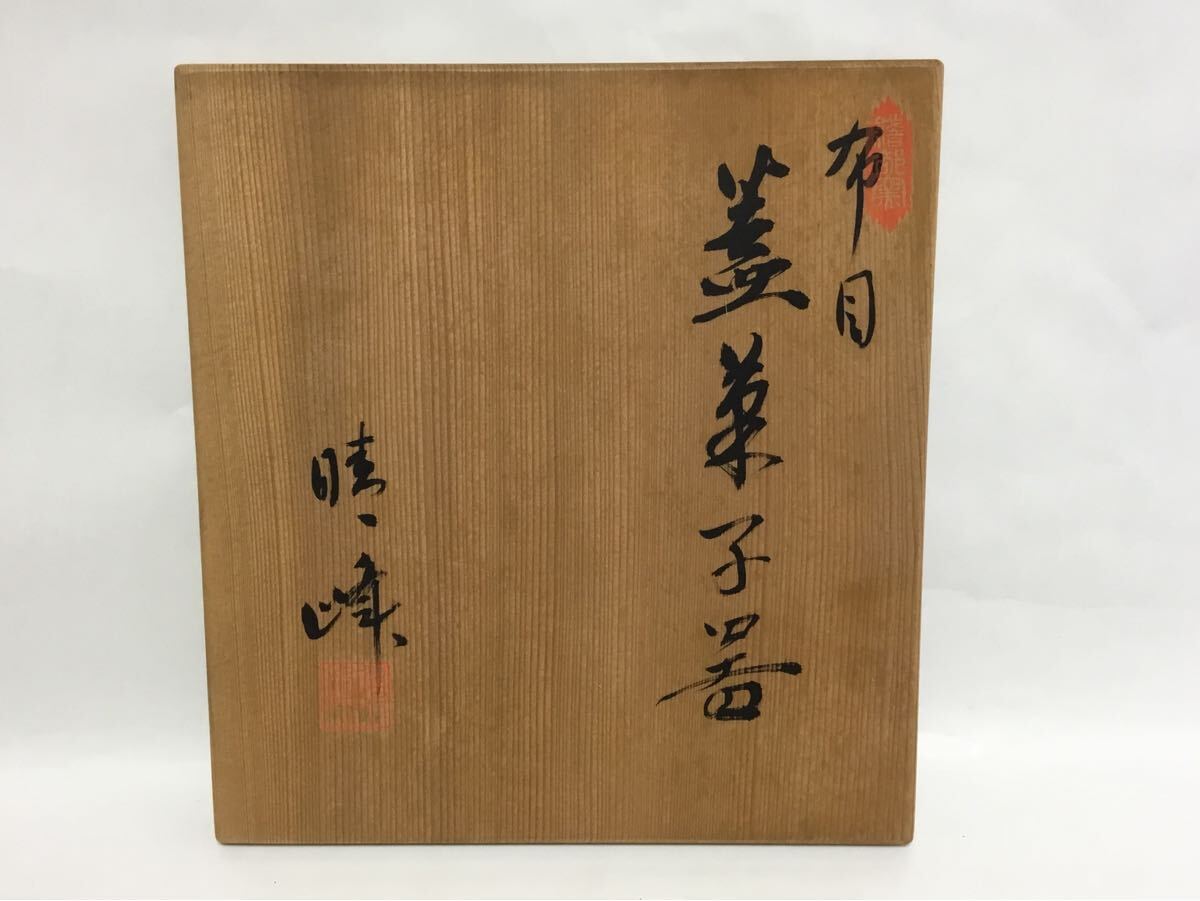 布目
蓋菓子器
晴峰